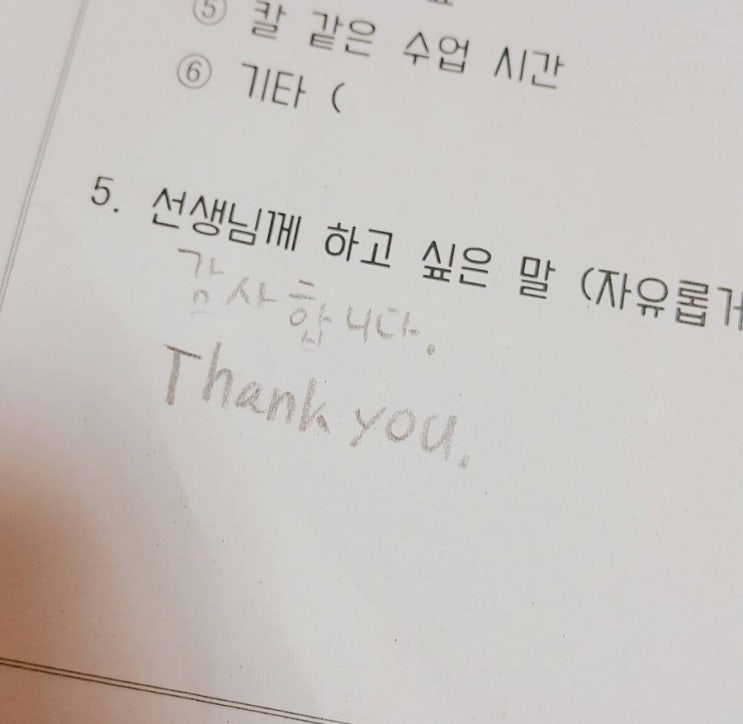 ⑤ 칼 같은 수업 시간
⑥ 기타 (
5. 선생님께 하고 싶은 말 (자유롭게
감사합니다.
Thank you.